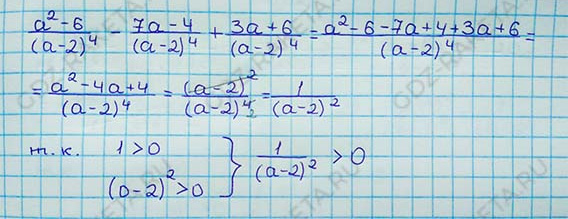 (a²-6)/(a-2)⁴ - (7a-4)/(a-2)⁴ + (3a+6)/(a-2)⁴ = (a²-6-7a+4+3a+6)/(a-2)⁴ =
= (a²-4a+4)/(a-2)⁴ = (a-2)²/(a-2)⁴₂ = 1/(a-2)²
т.к. 1>0
(a-2)²>0 } 1/(a-2)² > 0
GDZ-RAKETA.RU